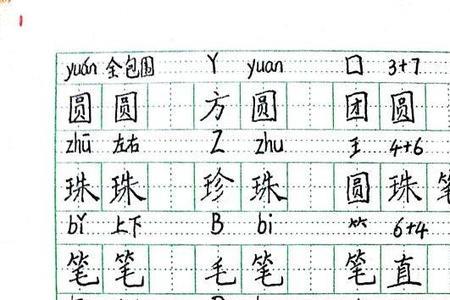 yuán 全包围 Y yuan 口 3+7
圆 圆 方 圆 团 圆
zhū 左右 Z zhu 王 4+6
珠 珠 珍 珠 圆 珠 笔
bǐ 上下 B bi ⺮ 6+4
笔 笔 毛 笔 笔 直